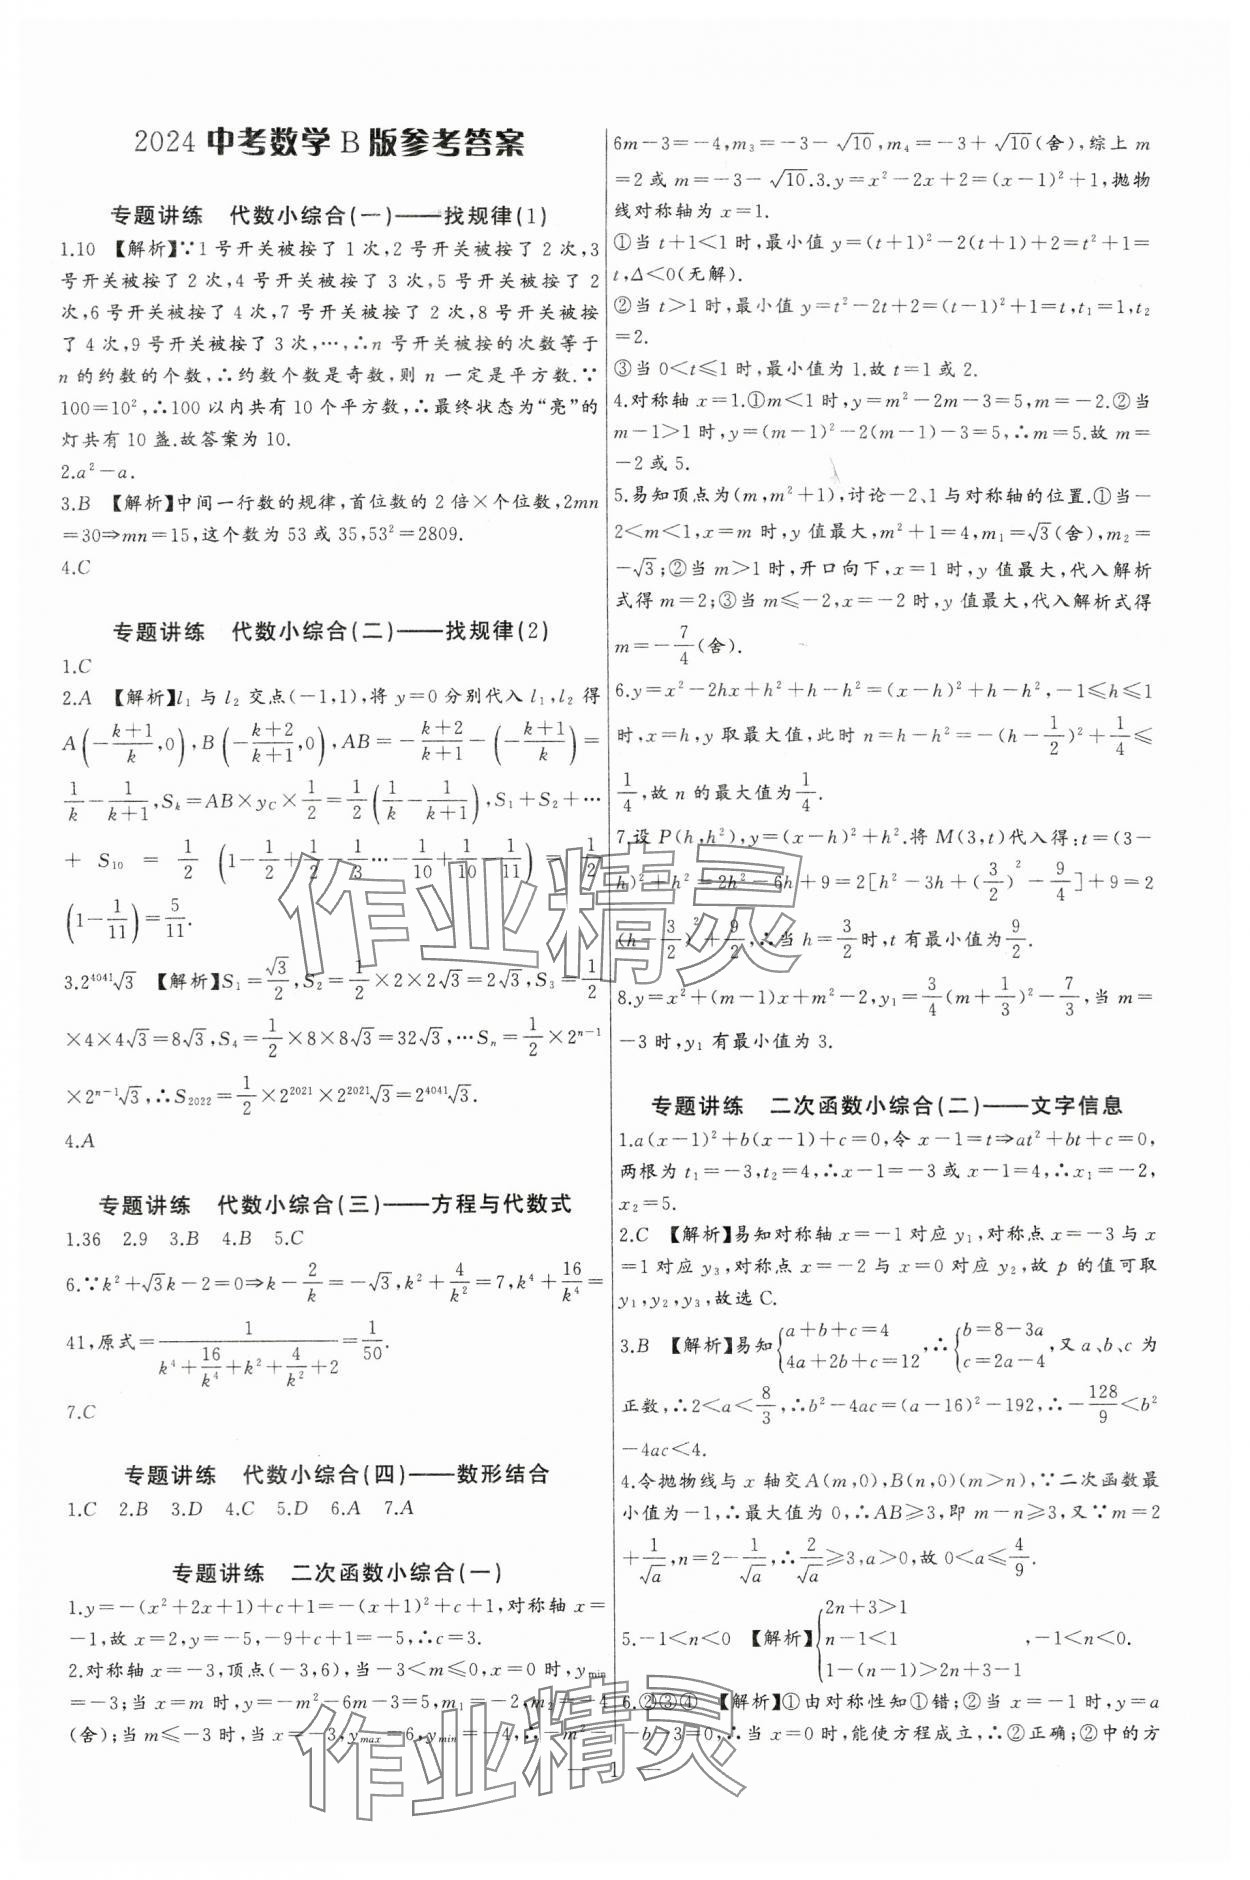 2024 中考数学 B 版参考答案
专题讲练 代数小综合(一)——找规律(1)
1.10 【解析】∵1 号开关被按了 1 次,2 号开关被按了 2 次,3
号开关被按了 2 次,4 号开关被按了 3 次,5 号开关被按了 2
次,6 号开关被按了 4 次,7 号开关被按了 2 次,8 号开关被按
了 4 次,9 号开关被按了 3 次,…,∴n 号开关被按的次数等于
n 的约数的个数,∴约数个数是奇数,则 n 一定是平方数.∵
100=10²,∴100 以内共有 10 个平方数,∴最终状态为“亮”的
灯共有 10 盏.故答案为 10.
2.a²-a.
3.B 【解析】中间一行数的规律,首位数的 2 倍×个位数,2mn
=30⇒mn=15,这个数为 53 或 35,53²=2809.
4.C
专题讲练 代数小综合(二)——找规律(2)
1.C
2.A 【解析】l₁ 与 l₂ 交点(-1,1),将 y=0 分别代入 l₁,l₂ 得
A(-(k+1)/k,0),B(-(k+2)/(k+1),0),AB=-(k+2)/(k+1)-(-(k+1)/k)=
1/k-1/(k+1),S_k=AB×y_C×1/2=1/2(1/k-1/(k+1)),S₁+S₂+…
+S₁₀=1/2(1-1/2+1/2-1/3…-1/10+1/10-1/11)=1/2
(1-1/11)=5/11.
3.2⁴⁰⁴¹√3 【解析】S₁=√3/2,S₂=1/2×2×2√3=2√3,S₃=1/2
×4×4√3=8√3,S₄=1/2×8×8√3=32√3,…Sₙ=1/2×2ⁿ⁻¹
×2ⁿ⁻¹√3,∴S₂₀₂₂=1/2×2²⁰²¹×2²⁰²¹√3=2⁴⁰⁴¹√3.
4.A
专题讲练 代数小综合(三)——方程与代数式
1.36 2.9 3.B 4.B 5.C
6.∵k²+√3k-2=0⇒k-2/k=-√3,k²+4/k²=7,k⁴+16/k⁴=
41,原式=1/(k⁴+16/k⁴+k²+4/k²+2)=1/50.
7.C
专题讲练 代数小综合(四)——数形结合
1.C 2.B 3.D 4.C 5.D 6.A 7.A
专题讲练 二次函数小综合(一)
1.y=-(x²+2x+1)+c+1=-(x+1)²+c+1,对称轴 x=
-1,故 x=2,y=-5,-9+c+1=-5,∴c=3.
2.对称轴 x=-3,顶点(-3,6),当-3<m≤0,x=0 时,y_min
=-3;当 x=m 时,y=-m²-6m-3=5,m₁=-2,m₂=-4
(舍);当 m≤-3 时,当 x=-3,y_max=6,y_min=-4,∴-m²-
6m-3=-4,m₃=-3-√10,m₄=-3+√10(舍),综上 m
=2 或 m=-3-√10.3.y=x²-2x+2=(x-1)²+1,抛物
线对称轴为 x=1.
①当 t+1<1 时,最小值 y=(t+1)²-2(t+1)+2=t²+1=
t,Δ<0(无解).
②当 t>1 时,最小值 y=t²-2t+2=(t-1)²+1=t,t₁=1,t₂
=2.
③当 0<t≤1 时,最小值为 1.故 t=1 或 2.
4.对称轴 x=1.①m<1 时,y=m²-2m-3=5,m=-2.②当
m-1>1 时,y=(m-1)²-2(m-1)-3=5,∴m=5.故 m=
-2 或 5.
5.易知顶点为(m,m²+1),讨论-2、1 与对称轴的位置.①当-
2<m<1,x=m 时,y 值最大,m²+1=4,m₁=√3(舍),m₂=
-√3;②当 m>1 时,开口向下,x=1 时,y 值最大,代入解析
式得 m=2;③当 m≤-2,x=-2 时,y 值最大,代入解析式得
m=-7/4(舍).
6.y=x²-2hx+h²+h-h²=(x-h)²+h-h²,-1≤h≤1
时,x=h,y 取最大值,此时 n=h-h²=-(h-1/2)²+1/4≤
1/4,故 n 的最大值为1/4.
7.设 P(h,h²),y=(x-h)²+h².将 M(3,t)代入得:t=(3-
h)²+h²=2h²-6h+9=2[h²-3h+(3/2)²-9/4]+9=2
(h-3/2)²+9/2,∴当 h=3/2时,t 有最小值为9/2.
8.y=x²+(m-1)x+m²-2,y₁=3/4(m+1/3)²-7/3,当 m=
-3 时,y₁ 有最小值为 3.
专题讲练 二次函数小综合(二)——文字信息
1.a(x-1)²+b(x-1)+c=0,令 x-1=t⇒at²+bt+c=0,
两根为 t₁=-3,t₂=4,∴x-1=-3 或 x-1=4,∴x₁=-2,
x₂=5.
2.C 【解析】易知对称轴 x=-1 对应 y₁,对称点 x=-3 与 x
=1 对应 y₃,对称点 x=-2 与 x=0 对应 y₂,故 p 的值可取
y₁,y₂,y₃,故选 C.
3.B 【解析】易知{a+b+c=4 4a+2b+c=12,∴{b=8-3a c=2a-4,又 a、b、c 为
正数,∴2<a<8/3,∴b²-4ac=(a-16)²-192,∴-128/9<b²
-4ac<4.
4.令抛物线与 x 轴交 A(m,0),B(n,0)(m>n),∵二次函数最
小值为-1,∴最大值为 0,∴AB≥3,即 m-n≥3,又∵m=2
+1/√a,n=2-1/√a,∴2/√a≥3,a>0,故 0<a≤4/9.
5.-1<n<0 【解析】{2n+3>1 n-1<1 1-(n-1)>2n+3-1,-1<n<0.
6.②③④ 【解析】①由对称性知①错;②当 x=-1 时,y=a
-b-3=0,∴当 x=0 时,能使方程成立,∴②正确;②中的方
— 1 —
作业精灵
作业精灵